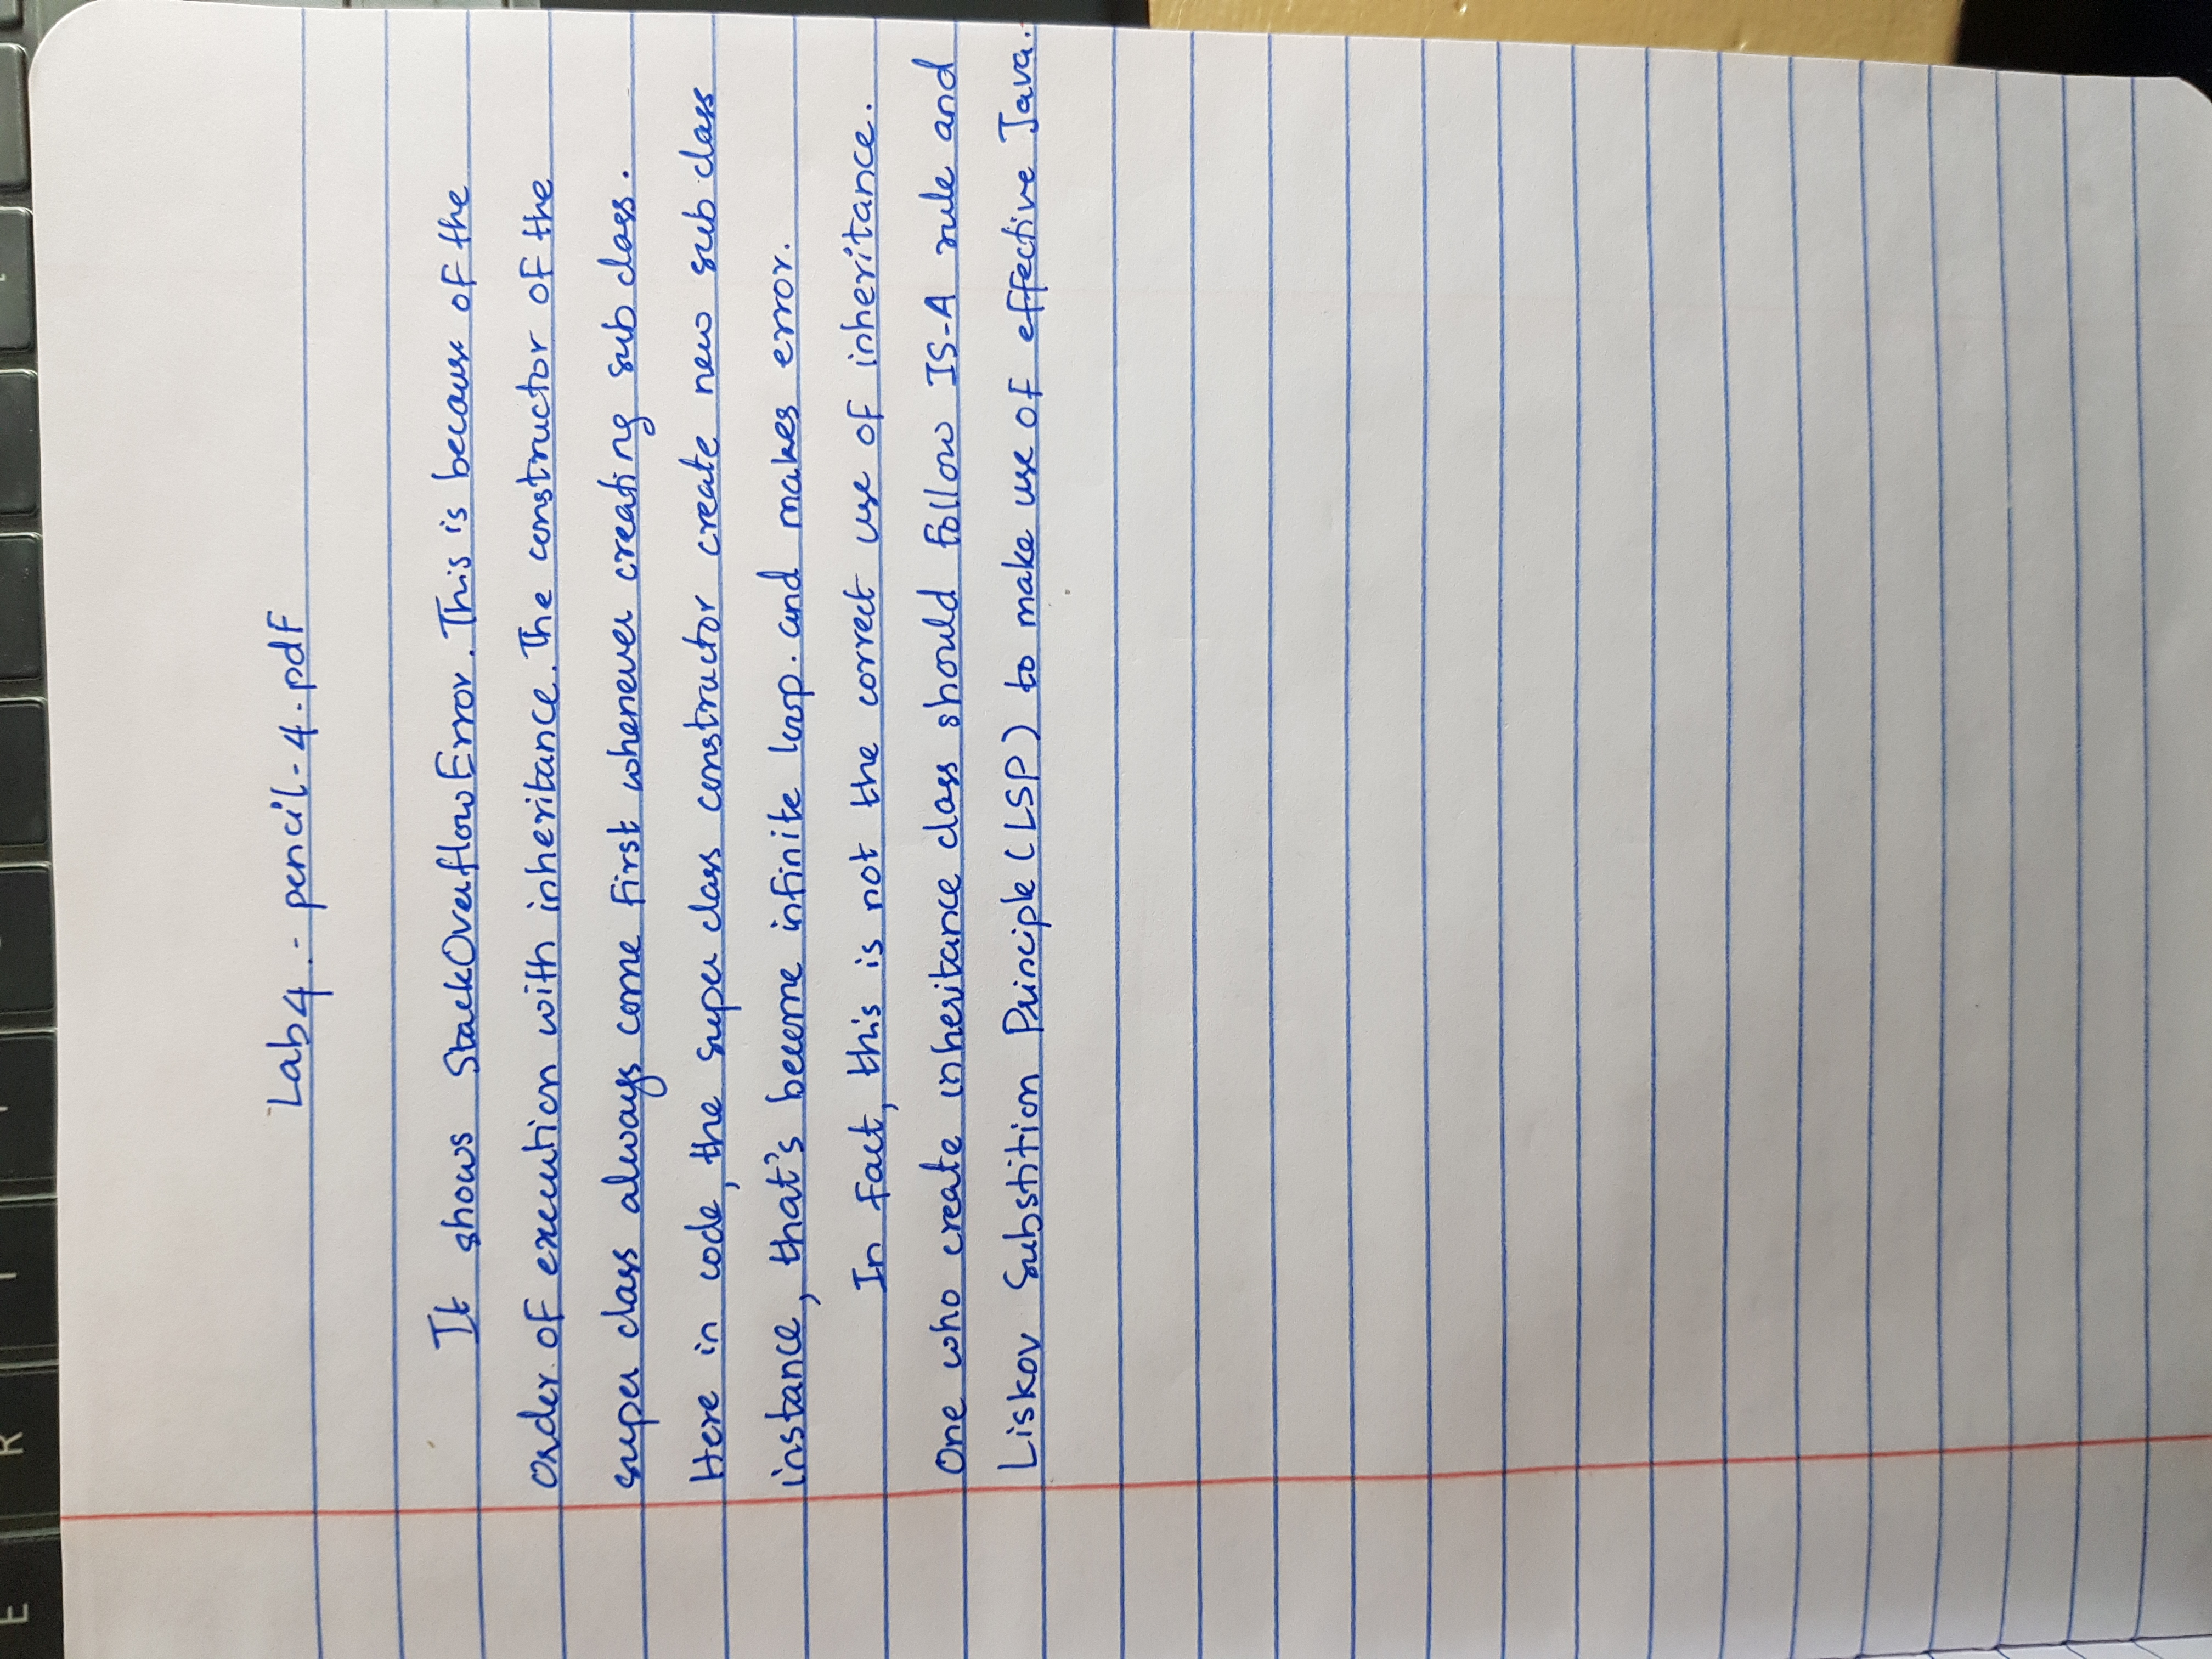 E R
Lab4 - pencil-4.pdf
It shows StackOverflowError. This is because of the
order of execution with inheritance. The constructor of the
super class always come first whenever creating sub class.
Here in code, the super class constructor create new sub class
instance, that's become infinite loop. and makes error.
In fact, this is not the correct use of inheritance.
One who create inheritance class should follow IS-A rule and
Liskov Substition Principle (LSP) to make use of effective Java.